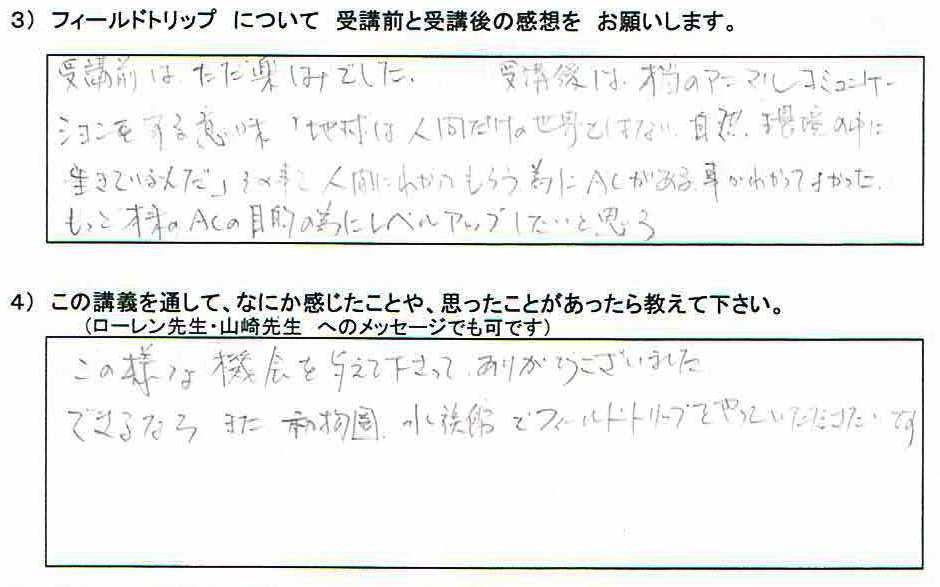 3) フィールドトリップ について 受講前と受講後の感想を お願いします。
受講前は、ただ楽しみでした。 受講後は、本当のアニマルコミュニケー
ションをする意味 「地球は人間だけの世界ではない、自然、環境の中に
生きているんだ」その事を人間にわかってもらう為にACがある事がわかってよかった。
もっと本来のACの目的の為にレベルアップしたいと思う
4) この講義を通して、なにか感じたことや、思ったことがあったら教えて下さい。
(ローレン先生・山崎先生 へのメッセージでも可です)
この様な機会を与えて下さって、ありがとうございました
できるなら また 動物園、水族館でフィールドトリップをやっていただきたいです